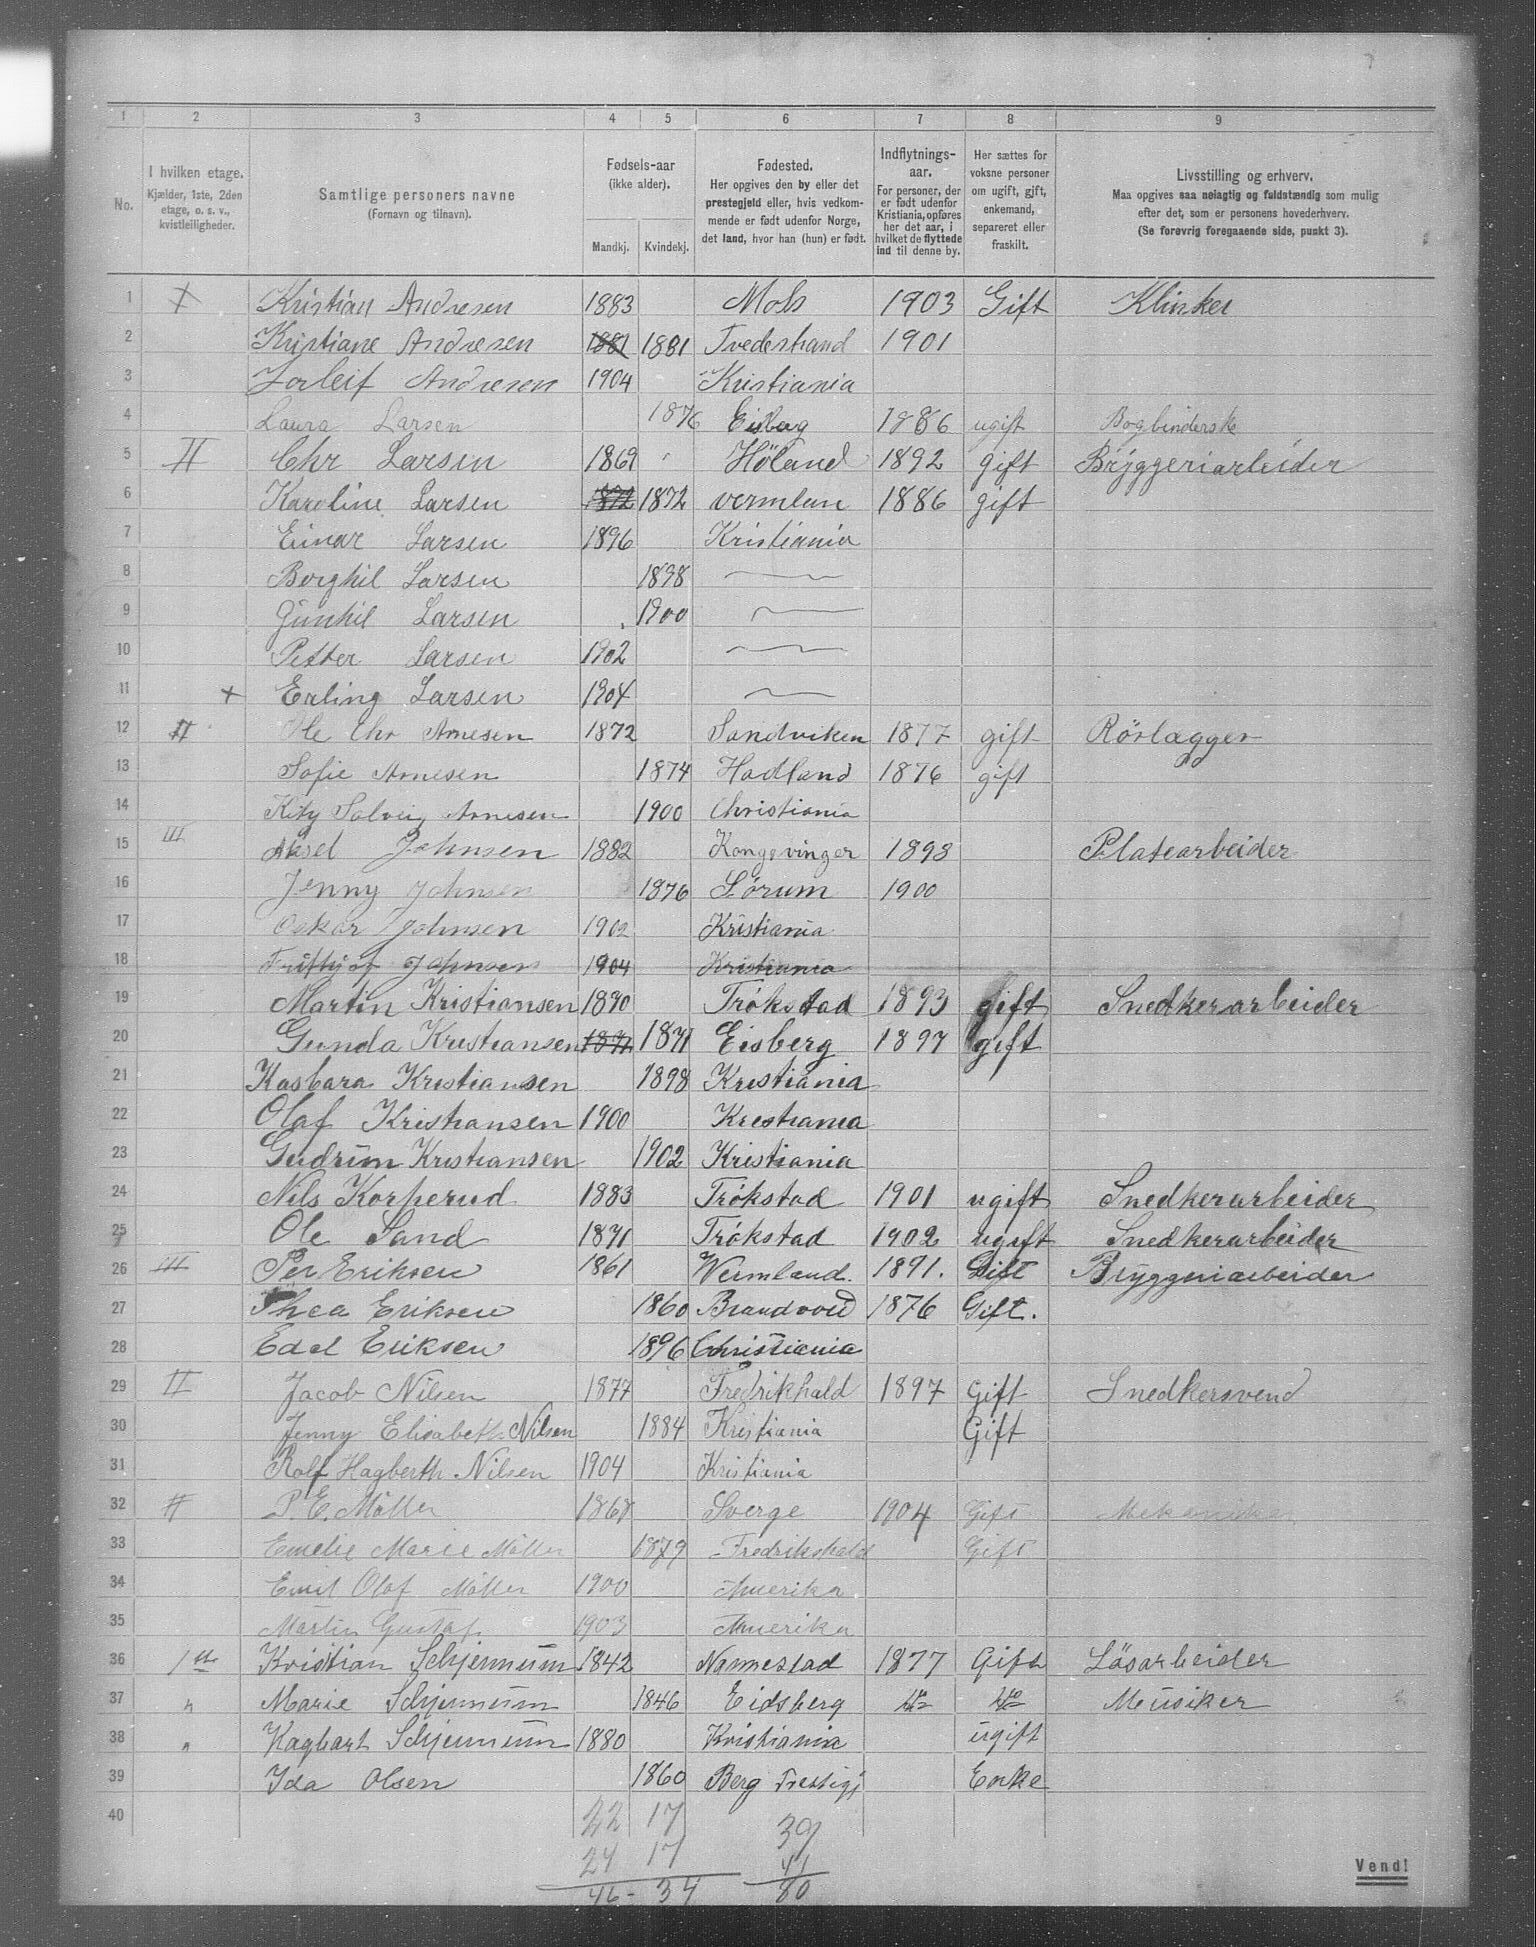 1 2 3 4 5 6 7 8 9
No.
I hvilken etage.
Kjælder, 1ste, 2den
etage, o. s. v.,
kvistleiligheder.
Samtlige personers navne
(Fornavn og tilnavn).
Fødsels-aar
(ikke alder).
Mandkj. Kvindekj.
Fødested.
Her opgives den by eller det
prestegjeld eller, hvis vedkom-
mende er født udenfor Norge,
det land, hvor han (hun) er født.
Indflytnings-
aar.
For personer, der
er født udenfor
Kristiania, opføres
her det aar, i
hvilket de flyttede
ind til denne by.
Her sættes for
voksne personer
om ugift, gift,
enkemand,
separeret eller
fraskilt.
Livsstilling og erhverv.
Maa opgives saa nøiagtig og fuldstændig som mulig
efter det, som er personens hovederhverv.
(Se forøvrig foregaaende side, punkt 3).
1 Kristian Andresen 1883 Mols 1903 Gift Klinker
2 Kristiane Andresen 1881 1881 Tvedestrand 1901
3 Torleif Andresen 1904 Kristiania
4 Laura Larsen 1876 Eisberg 1886 ugift Bogbinderske
5 II Chr Larsen 1869 Höland 1892 gift Bryggeriarbeider
6 Karoline Larsen 1872 1872 vermlan 1886 gift
7 Einar Larsen 1896 Kristiania
8 Borghil Larsen 1898
9 Gunhil Larsen 1900
10 Petter Larsen 1902
11 + Erling Larsen 1904
12 II Ole Chr Arnesen 1872 Sandviken 1877 gift Rörlægger
13 Sofie Arnesen 1874 Hadland 1876 gift
14 Kity Solveig Arnesen 1900 Christiania
15 III Aksel Johnsen 1882 Kongsvinger 1898 Platearbeider
16 Jenny Johnsen 1876 Sørum 1900
17 Oskar Johnsen 1902 Kristiania
18 Frithjof Johnsen 1904 Kristiania
19 Martin Kristiansen 1870 Trøkstad 1893 gift Snedkerarbeider
20 Gunda Kristiansen 1871 1871 Eisberg 1897 gift
21 Kasbara Kristiansen 1898 Kristiania
22 Olaf Kristiansen 1900 Kristiania
23 Gudrun Kristiansen 1902 Kristiania
24 Nils Korperud 1883 Trøkstad 1901 ugift Snedkerarbeider
25 Ole Sand 1871 Trøkstad 1902 ugift Snedkerarbeider
26 III Per Eriksen 1861 Wermland. 1891. Gift Bryggeriarbeider
27 Thea Eriksen 1860 Brandvold 1876 Gift.
28 Edel Eriksen 1896 Christiania
29 II Jacob Nilsen 1877 Fredrikhald 1897 Gift Snedkersvend
30 Jenny Elisabeth Nilsen 1884 Kristiania Gift
31 Rolf Hagberth Nilsen 1904 Kristiania
32 II P. E. Möller 1868 Sverge 1904 Gift Mekaniker
33 Emelie Marie Möller 1879 Fredrikshald Gift
34 Emil Olaf Möller 1900 Amerika
35 Martin Gustaf 1903 Amerika
36 1ste Kristian Schjennum 1842 Nannestad 1877 Gift Läsarbeider
37 " Marie Schjennum 1846 Eidsberg do do Musiker
38 " Hagbart Schjennum 1880 Kristiania ugift
39 Ida Olsen 1860 Berg Prestigj Enke
40
22 17 39
24 17 41
46 - 34 80
Vend!